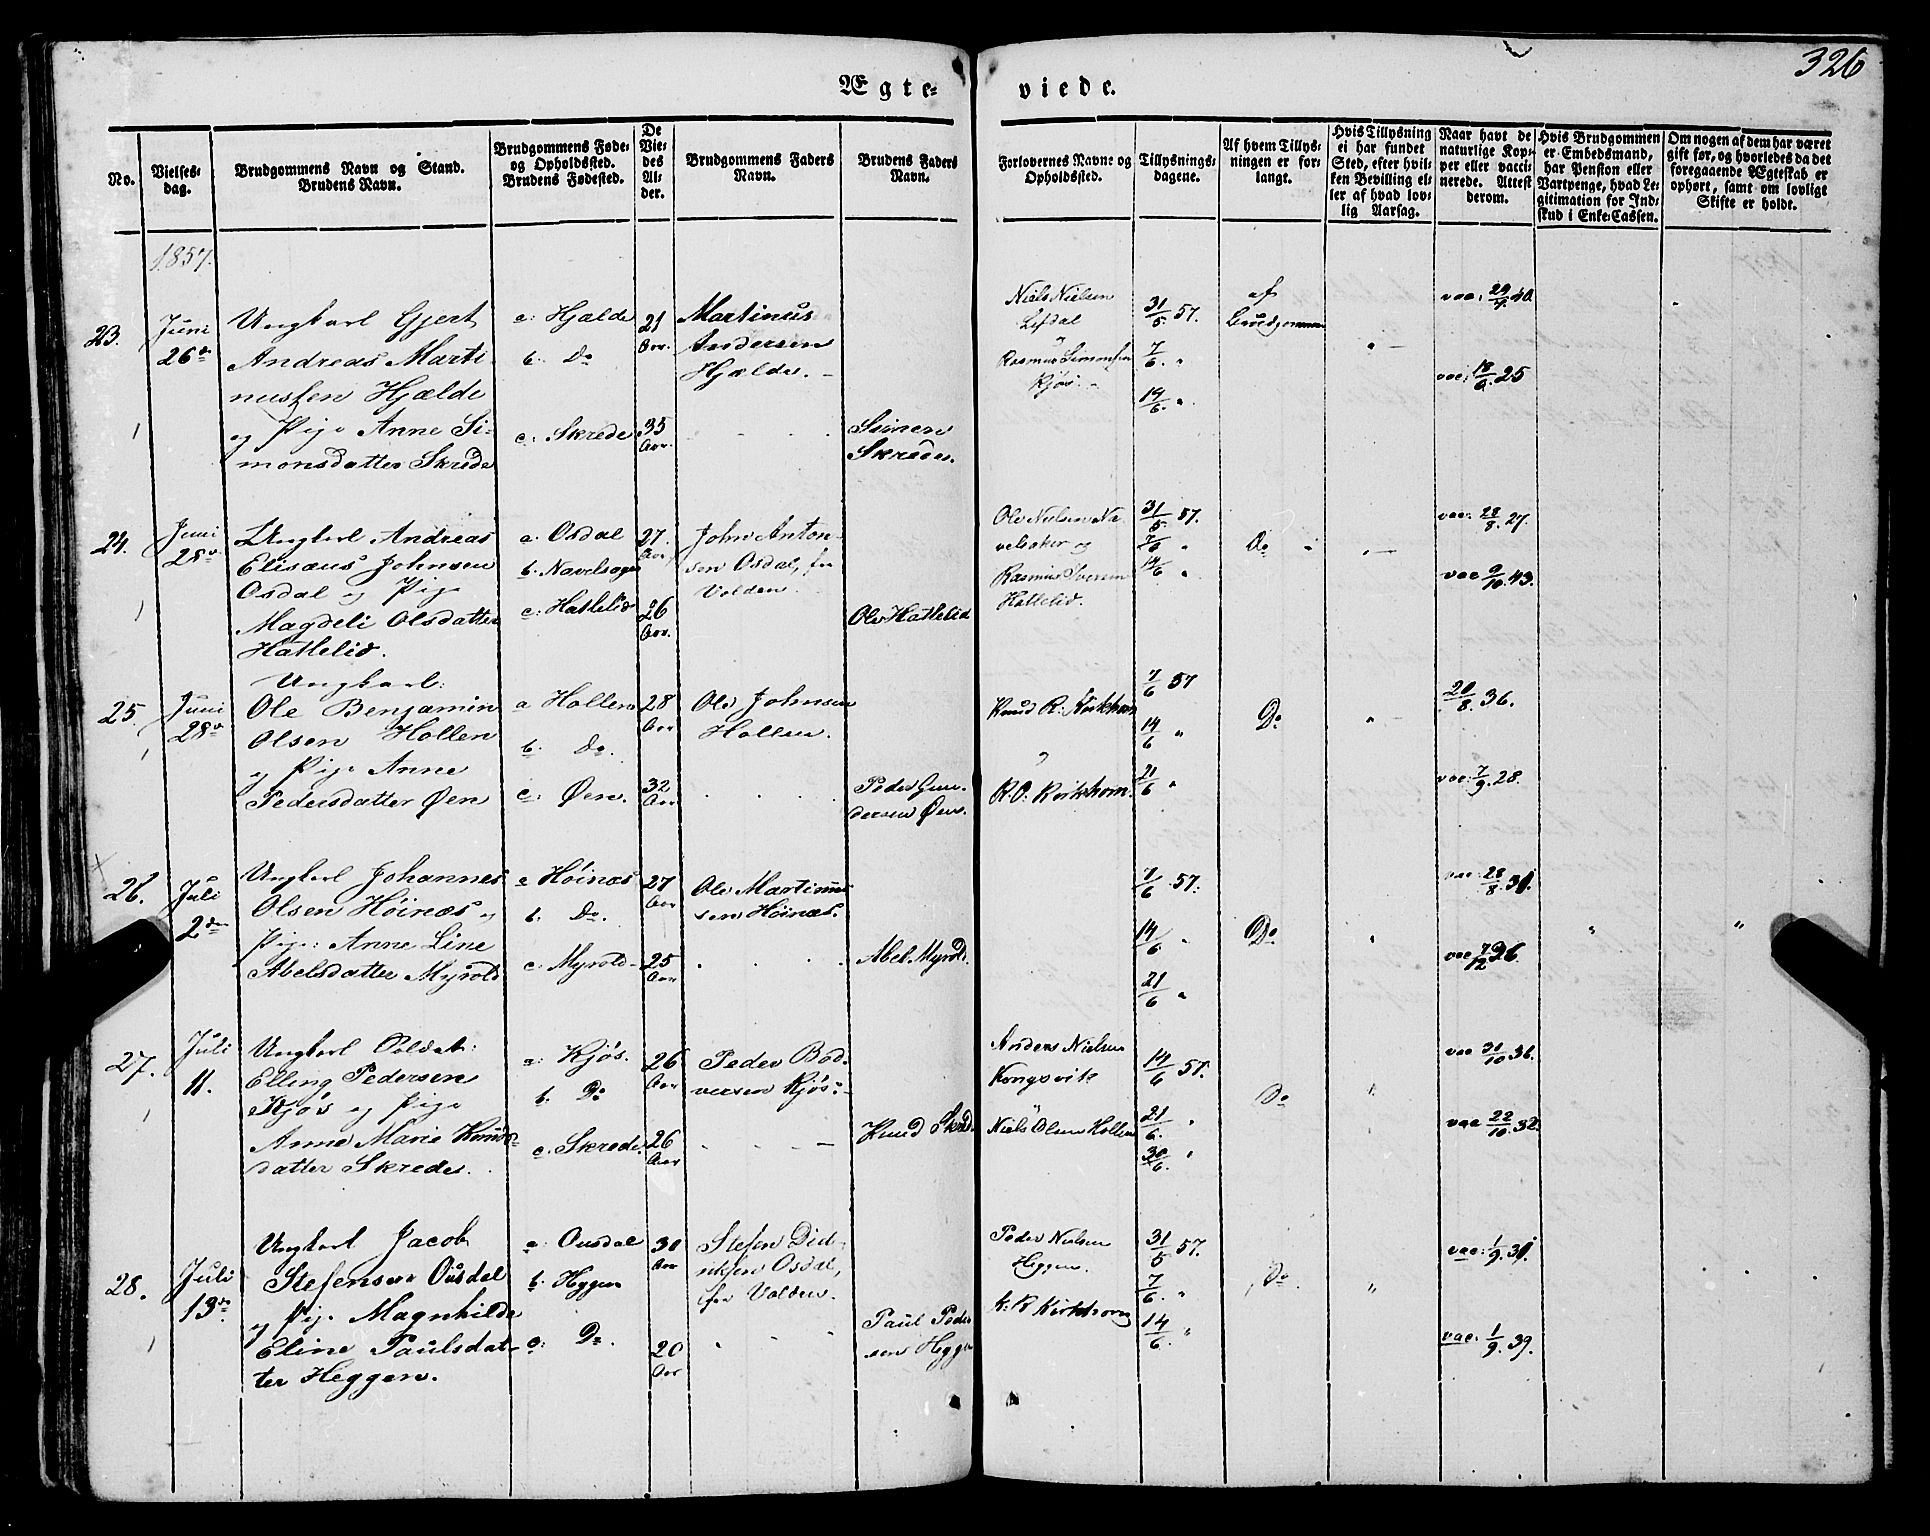 326
Ægte-
viede.
No.
Vielses-
dag.
Brudgommens Navn og Stand.
Brudens Navn.
Brudgommens Føde-
og Opholdssted.
Brudens Fødested.
De
Vie-
des
Al-
der.
Brudgommens Faders
Navn.
Brudens Faders
Navn.
Forlovernes Navne og
Opholdssted.
Tillysnings-
dagene.
Af hvem Tillys-
ningen er for-
langt.
Hvis Tillysning
ei har fundet
Sted, efter hvil-
ken Bevilling el-
ler af hvad lov-
lig Aarsag.
Naar havt de
naturlige Kop-
per eller vacci-
nerede. Attest
derom.
Hvis Brudgommen
er Embedsmand,
har Pension eller
Vartpenge, hvad Le-
gitimation for Ind-
skud i Enke-Cassen.
Om nogen af dem har været
gift før, og hvorledes da det
foregaaende Ægteskab er
ophørt, samt om lovligt
Skifte er holdt.
1857.
23.
Juni
26de
Ungkarl Gjert
Andreas Marti-
nussen Hjelde
og Pige Anne Si-
monsdatter Skrede
a: Hjelde
b. Do
c: Skrede
21
Aar.
35
Aar.
Martinus
Andersen
Hjelde.
Simen
Skrede.
Niels Nielsen
Lefdal
Rasmus Simensen
Kjøs.
31/5 57.
7/6 "
14/6 "
af
Brudgommen
vac: 29/7 40.
vac: 18/9 25
24.
Juni
28de
Ungkarl Andreas
Elisæus Johnsen
Osdal og Pige
Magdeli Olsdatter
Hattelid.
a. Osdal
b. Navelsager
c: Hattelid
27.
Aar
26
Aar.
John Anton-
sen Osdal, fra
Volden.
Ole Hattelid
Ole Nielsen Na-
velsaker og
Rasmus Iversen
Hattelid.
31/5 57.
7/6 "
14/6 "
Do
vac: 28/8 27.
vac 9/10 43.
25.
Juni
28de
Ungkarl:
Ole Benjamin
Olsen Hollen
og Pige Anne
Pedersdatter Øen
a Hollen
b. Do.
c. Øen.
28
Aar
32
Aar
Ole Johnsen
Hollen.
Peder Gun-
dersen Øen.
Knud R: Kirkhorn
R. O. Kirkhorn.
7/6 57
14/6 "
21/6 "
Do
20/8 36.
vac: 7/9 28.
26.
Juli
2den
Ungkarl Johannes
Olsen Höinæs og
Pige: Anne Line
Abelsdatter Myrold
a Höinæs
b. Do.
c. Myrold
27
Aar
25
Aar
Ole Martinus
sen Höinæs.
Abel Myrold.
7/6 57.
14/6 "
21/6 "
Do
vac: 28/8 31.
vac 7/12 26.
27.
Juli
11.
Ungkarl Soldat:
Elling Pedersen
Kjøs og Pige
Anne Marie Knuds
datter Skrede.
a: Kjøs.
b. Do
c. Skrede.
26
Aar
26
Aar
Peder Bod-
versen Kjøs.
Knud Skred.
Anders Nielsen
Kongsvik
Niels Olsen Hollen
14/6 57.
21/6 "
30/6 "
Do
vac 31/10 36.
vac 22/10 32.
28.
Juli
13de
Ungkarl Jacob
Stefensen Ousdal
og Pige Magnhilde
Eline Paulsdat-
ter Heggen.
a. Ousdal
b. Heggen
c: Do.
30
Aar
20
Aar
Stefen Did-
riksen Osdal,
fra Volden.
Paul Peder
sen Heggen
Peder Nielsen
Heggen.
K: R Kirkhorn
31/5 57.
7/6. "
14/6. "
Do
vac: 1/9 31.
vac: 1/9 39.